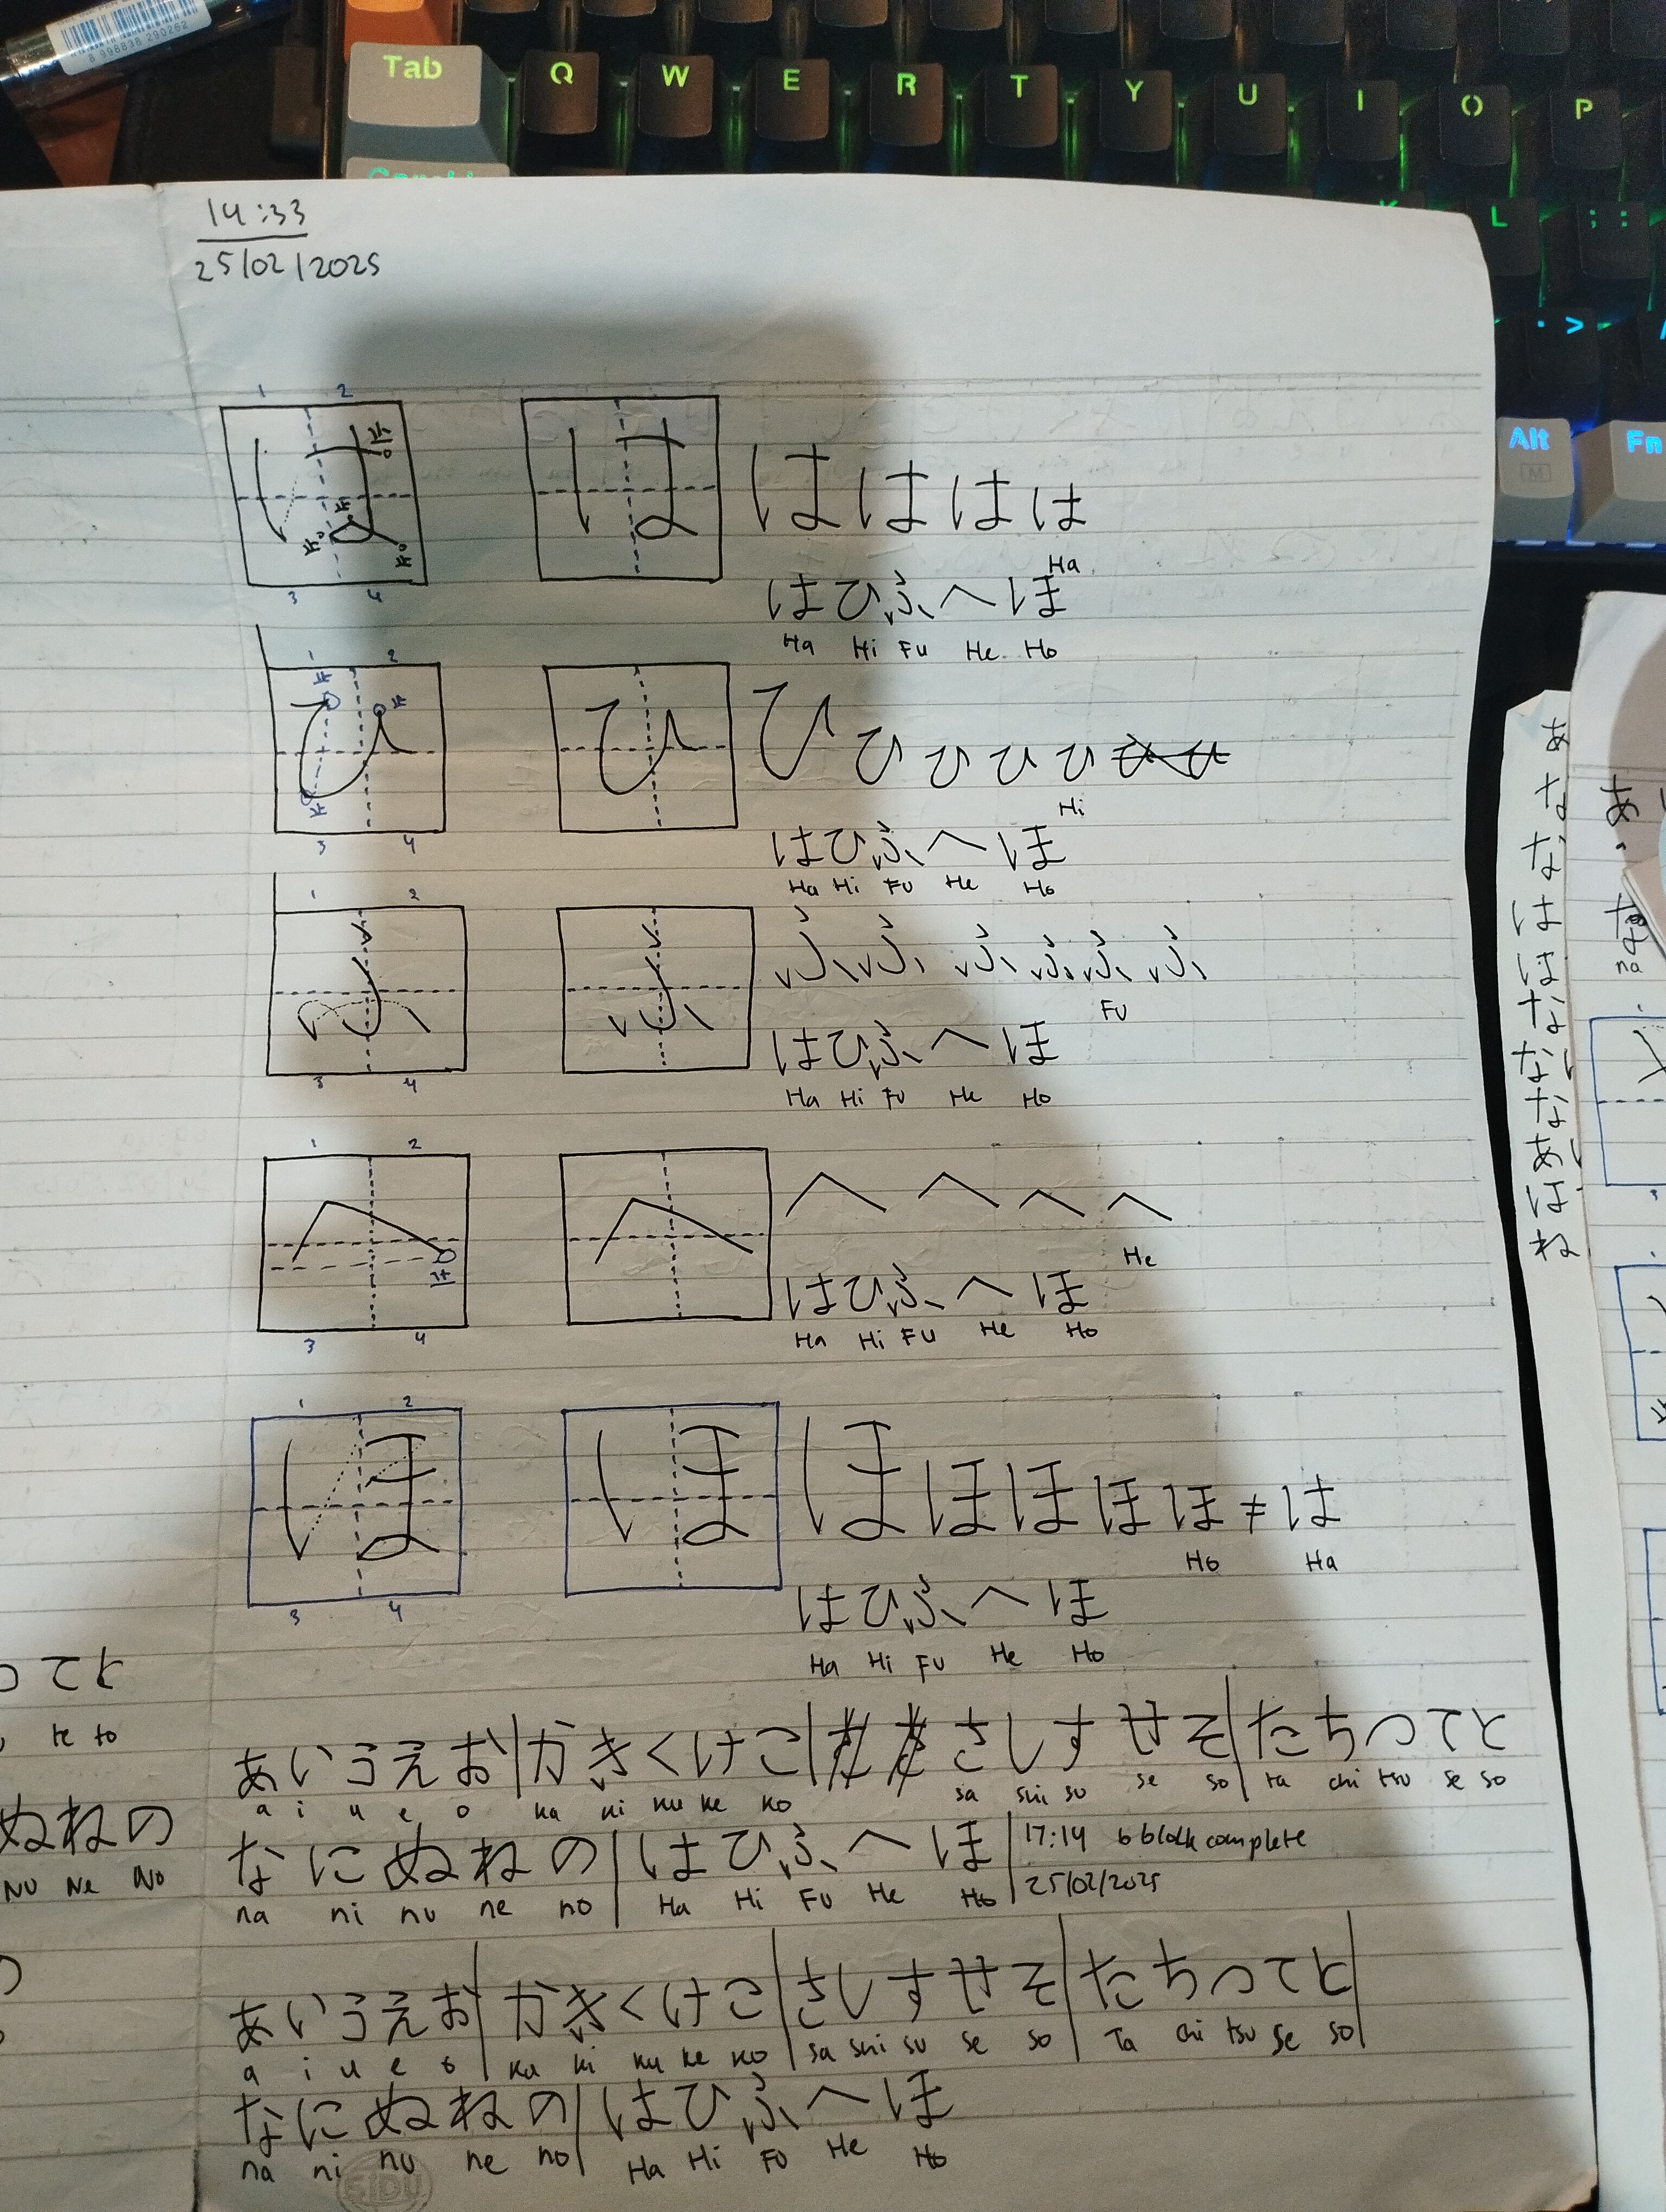 8 998838 290262
Tab Q W E R T Y U I O P
L ; :
. >
Alt Fn
M
14:33
25/02/2025
1 2
は は は は は は
Ha
3 4
は ひ ふ へ ほ
Ha Hi Fu He Ho
1 2
ひ ひ ひ ひ ひ ひ ひ
Hi
3 4
は ひ ふ へ ほ
Ha Hi Fu He Ho
1 2
ふ ふ ふ ふ ふ ふ ふ ふ
Fu
は ひ ふ へ ほ
3 4
Ha Hi Fu He Ho
1 2
へ へ へ へ へ へ
He
は ひ ふ へ ほ
3 4
Ha Hi Fu He Ho
1 2
ほ ほ ほ ほ ほ ほ ほ ≠ は
Ho Ha
3 4
は ひ ふ へ ほ
Ha Hi Fu He Ho
あ い う え お | か き く け こ | さ し す せ そ | た ち つ て と
a i u e o ka ki ku ke ko sa shi su se so ta chi tsu se so
な に ぬ ね の | は ひ ふ へ ほ | 17:14 6 block complete
na ni nu ne no Ha Hi Fu He Ho 25/02/2025
あ い う え お | か き く け こ | さ し す せ そ | た ち つ て と |
a i u e o ka ki ku ke ko sa shi su se so Ta chi tsu se so
な に ぬ ね の | は ひ ふ へ ほ
na ni nu ne no Ha Hi Fu He Ho
SIDU
つ て と
te to
ぬ ね の
Nu Ne No
あ な な は は な な な あ は ね
あ
na